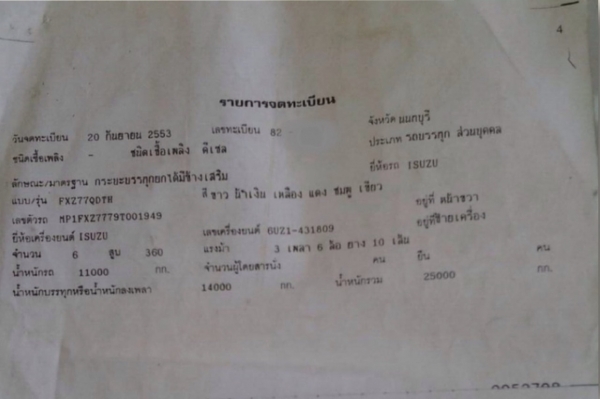 4
รายการจดทะเบียน
วันจดทะเบียน 20 กันยายน 2553 เลขทะเบียน 82 จังหวัด นนทบุรี
ชนิดเชื้อเพลิง - ชนิดเชื้อเพลิง ดีเซล ประเภท รถบรรทุก ส่วนบุคคล
ลักษณะ/มาตรฐาน กระบะบรรทุกยกได้มีข้างเสริม ยี่ห้อรถ ISUZU
แบบ/รุ่น FXZ77QDTH สี ขาว น้ำเงิน เหลือง แดง ชมพู เขียว
เลขตัวรถ MP1FXZ77T9T001949 อยู่ที่ คอขวา
ยี่ห้อเครื่องยนต์ ISUZU เลขเครื่องยนต์ 6UZ1-431809 อยู่ที่ซ้ายเครื่อง
จำนวน 6 สูบ 360 แรงม้า 3 เพลา 6 ล้อ ยาง 10 เส้น
น้ำหนักรถ 11000 กก. จำนวนผู้โดยสารนั่ง คน ยืน คน
น้ำหนักบรรทุกหรือน้ำหนักลงเพลา 14000 กก. น้ำหนักรวม 25000 กก.